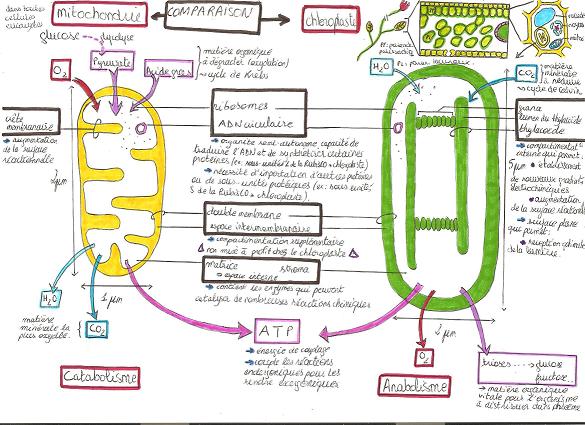 dans toutes
cellules
eucaryotes
mitochondrie
COMPARAISON
chloroplaste
glucose
glycolyse
Pyruvate
Acides gras
matière organique
à dégrader (oxydation)
→ cycle de Krebs
O₂
H₂O
CO₂
matière
minérale
à réduire
→ cycle de Calvin
crête
membranaire
→ augmentation
de la surface
réactionnelle
ribosomes
ADN circulaire
→ organite semi-autonome capable de
traduire l'ADN et de synthétiser certaines
protéines
→ nécessité d'importation d'autres protéines
ou de sous-unités protéiques (ex: sous unité
S de la RubisCO → chloroplaste)
grana
lumen du thylacoïde
thylacoïde
→ compartiment
interne qui permet
→ établissement
de nouveaux gradients
électrochimiques
→ augmentation
de la surface
→ surface plane
qui permet:
→ réception optimale
de la lumière.
5 µm
2 µm
double membrane
espace intermembranaire
→ compartimentation supplémentaire
non mise à profit chez le chloroplaste
matrice stroma
→ espace interne
→ contient les enzymes qui peuvent
catalyser de nombreuses réactions chimiques
1 µm
H₂O
CO₂
matière
minérale la
plus oxydée.
ATP
→ énergie de couplage
→ couple les réactions
endergoniques pour les
rendre exergoniques
O₂
trioses → glucose
fructose...
→ matière organique
vitale pour l'organisme
à distribuer dans phloème
Catabolisme
Anabolisme